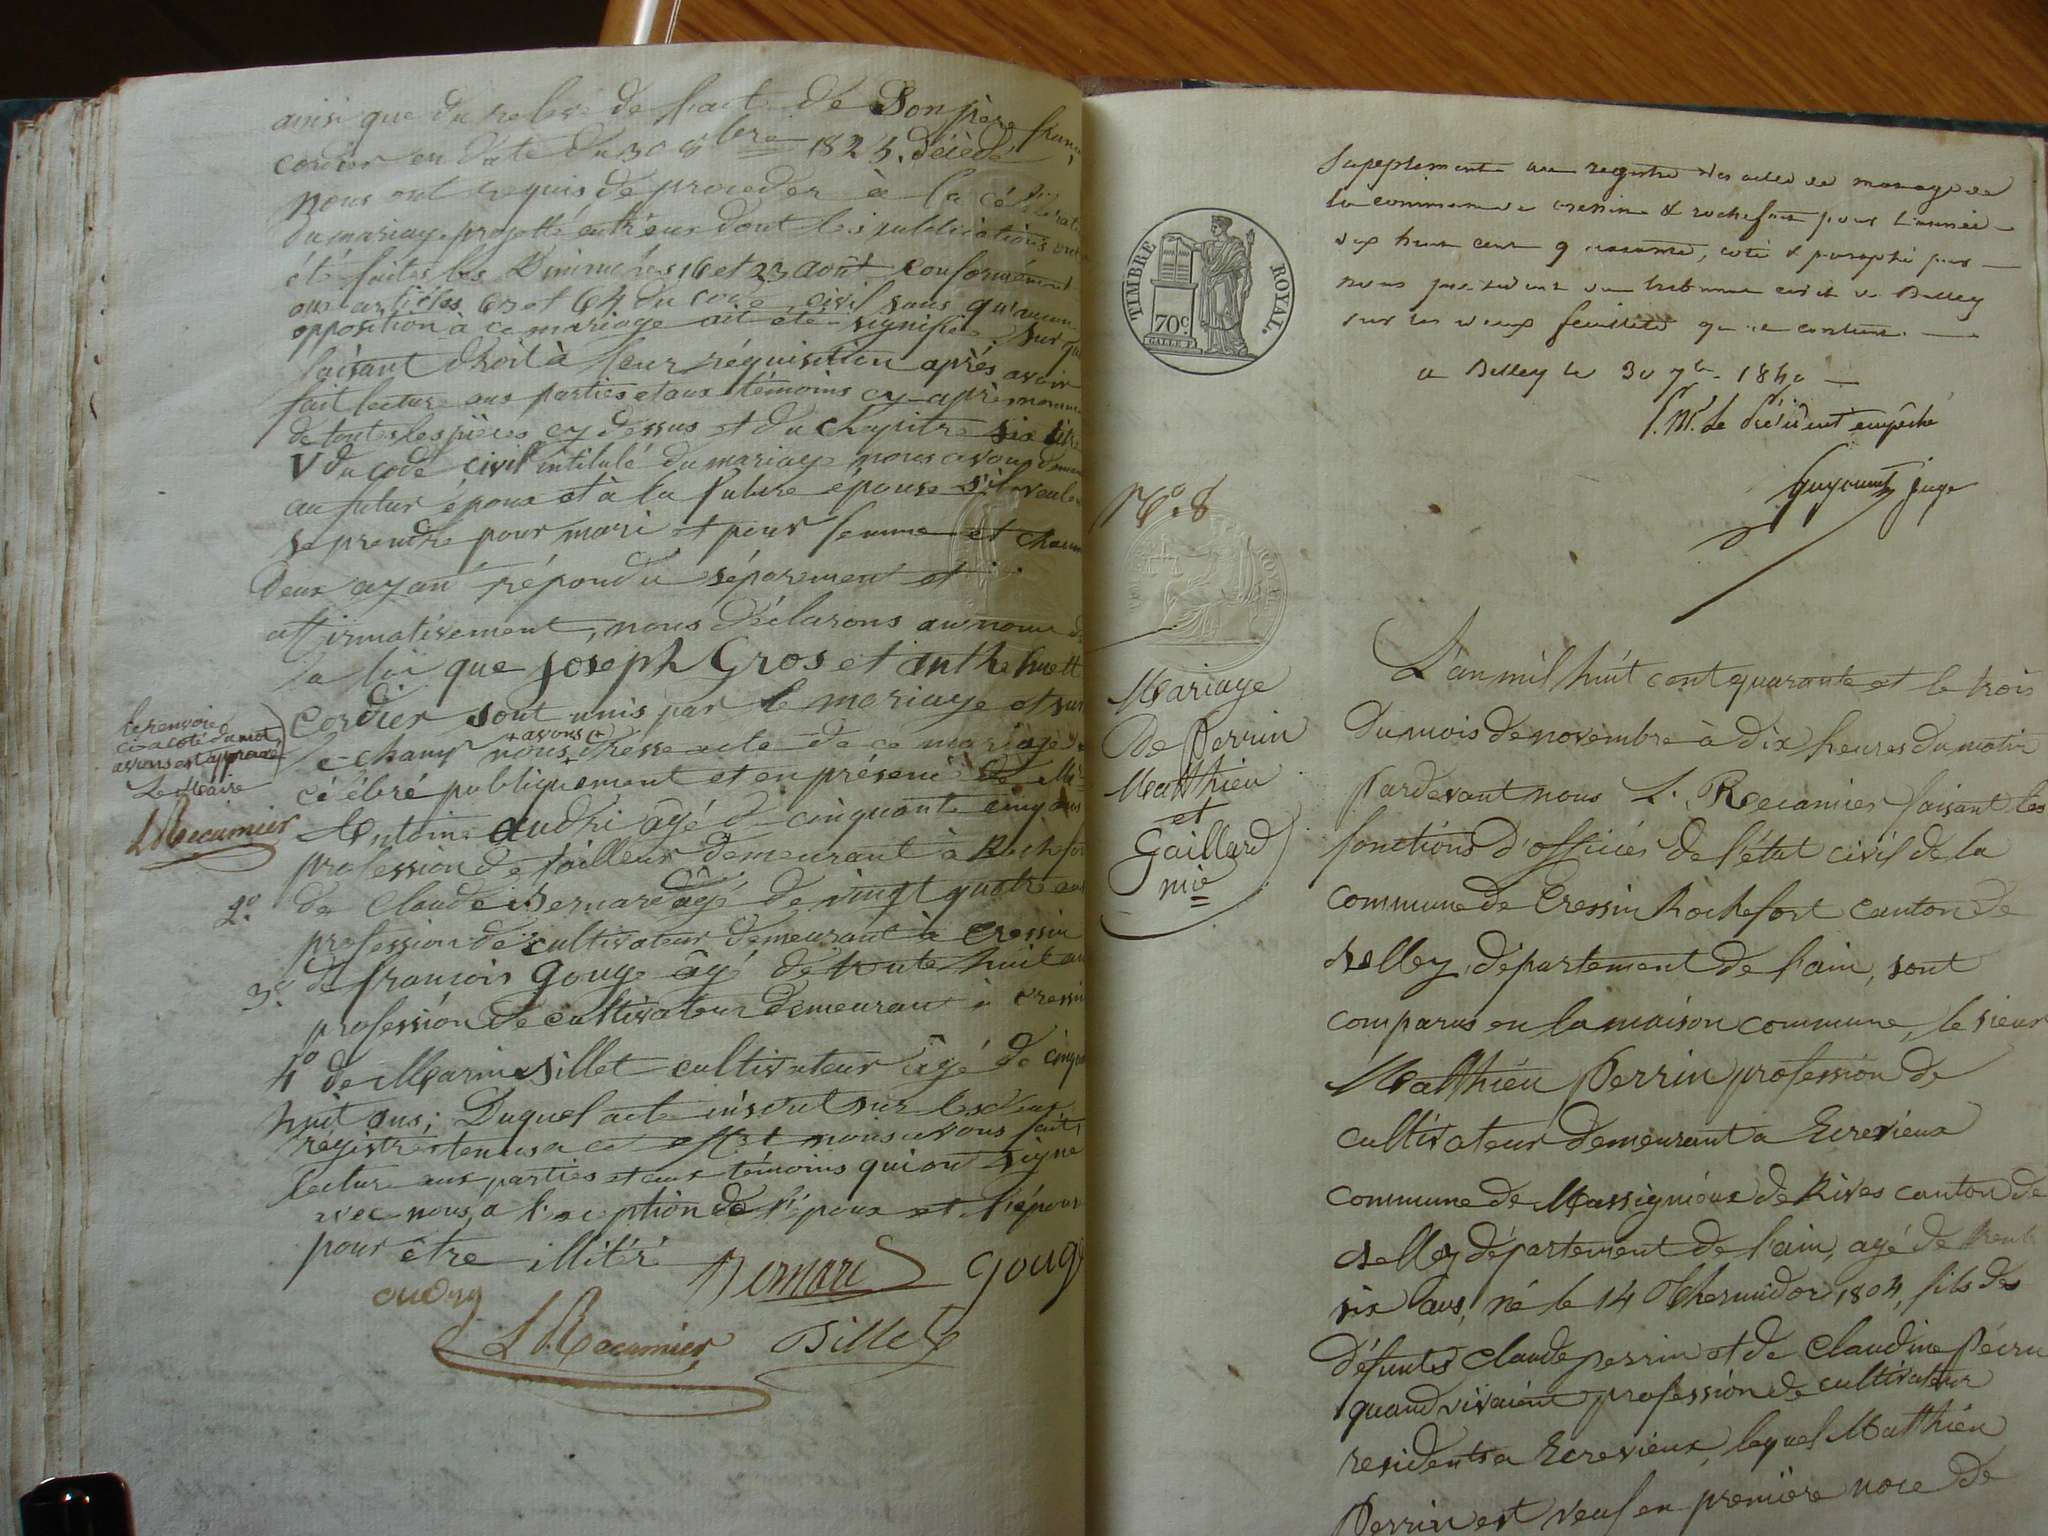 ainsi que du relevé de l'acte de Son père
cordier en date du 30 8bre 1825. décédé
nous ont requis de proceder à la célébrat
du mariage projetté entr'eux dont les publications ont
été faites les Dimanches 16 et 23 août conformément
aux articles 63 et 64 du code civil sans qu'aucun
opposition à ce mariage ait été signifiée sur quoi
faisant droit à leur réquisition après avoir
fait lecture aux parties et aux témoins cy-après nommé
de toutes les pièces cy dessus et du chapitre six titre
V du code civil intitulé du mariage nous avons deman
au futur époux et à la future épouse s'il veulent
se prendre pour mari et pour femme et chacun
Deux ayant répondu séparement et
affirmativement, nous déclarons au nom de
la loi que Joseph Gros et Anthelmett
cordier sont unis par le mariage et sur
le renvoi
ci à côté du mot
avons est approuvé
Le Maire
LRecamier
le champ nous +avons+ dressé acte de ce mariage
célébré publiquement et en présence de
Antoine audri agé de cinquante cinq ans
profession de tailleur demeurant à Rochefor
2.° de Claude Bernard agé de vingt quatre ans
profession de cultivateur demeurant à Cressin
3.° de françois gouge agé de trente huit an
profession de cultivateur demeurant à cressin
4° de Marin Sillet cultivateur agé de cinqu
huit ans; Duquel acte inscrit sur les deux
régistres tenus a cet effet nous avons fait
lecture aux parties et aux témoins qui ont signé
avec nous, a l'exception de l'époux et l'épouse
pour être illitéré
Bernard gouge
audry
LRecamier Sillet
Supplement au registre des actes de mariage de
la commune de cressin & rochefort pour l'année
dix huit cent quarante, coté & paraphé par
nous president du tribunal civil de Belley
sur les deux feuillets qu'il contient
a Belley le 30 7bre 1840
P. Mr. Le Président empêché
Guyounet Juge
TIMBRE ROYAL.
70c.
N.° 8
Mariage
de Perrin
Matthieu
et
Gaillard
mie
L'an mil huit cent quarante et le trois
Du mois de novembre à dix heures du matin
Pardevant nous L. Recamier faisant les
fonctions d'officier de l'état civil de la
commune de Cressin Rochefort canton de
Belley, département de l'ain, sont
comparus en la maison commune, le sieur
Matthieu Perrin profession de
cultivateur demeurant a Ecrevieux
commune de Massignieux de Rives canton de
Belley département de l'ain, agé de trente
six ans, né le 14 Thermidor 1804, fils des
défunts Claude perrin et de Claudine
quand vivaient profession de cultivateur
residents a Ecrevieux, lequel Matthieu
Perrin est veuf en première noce de